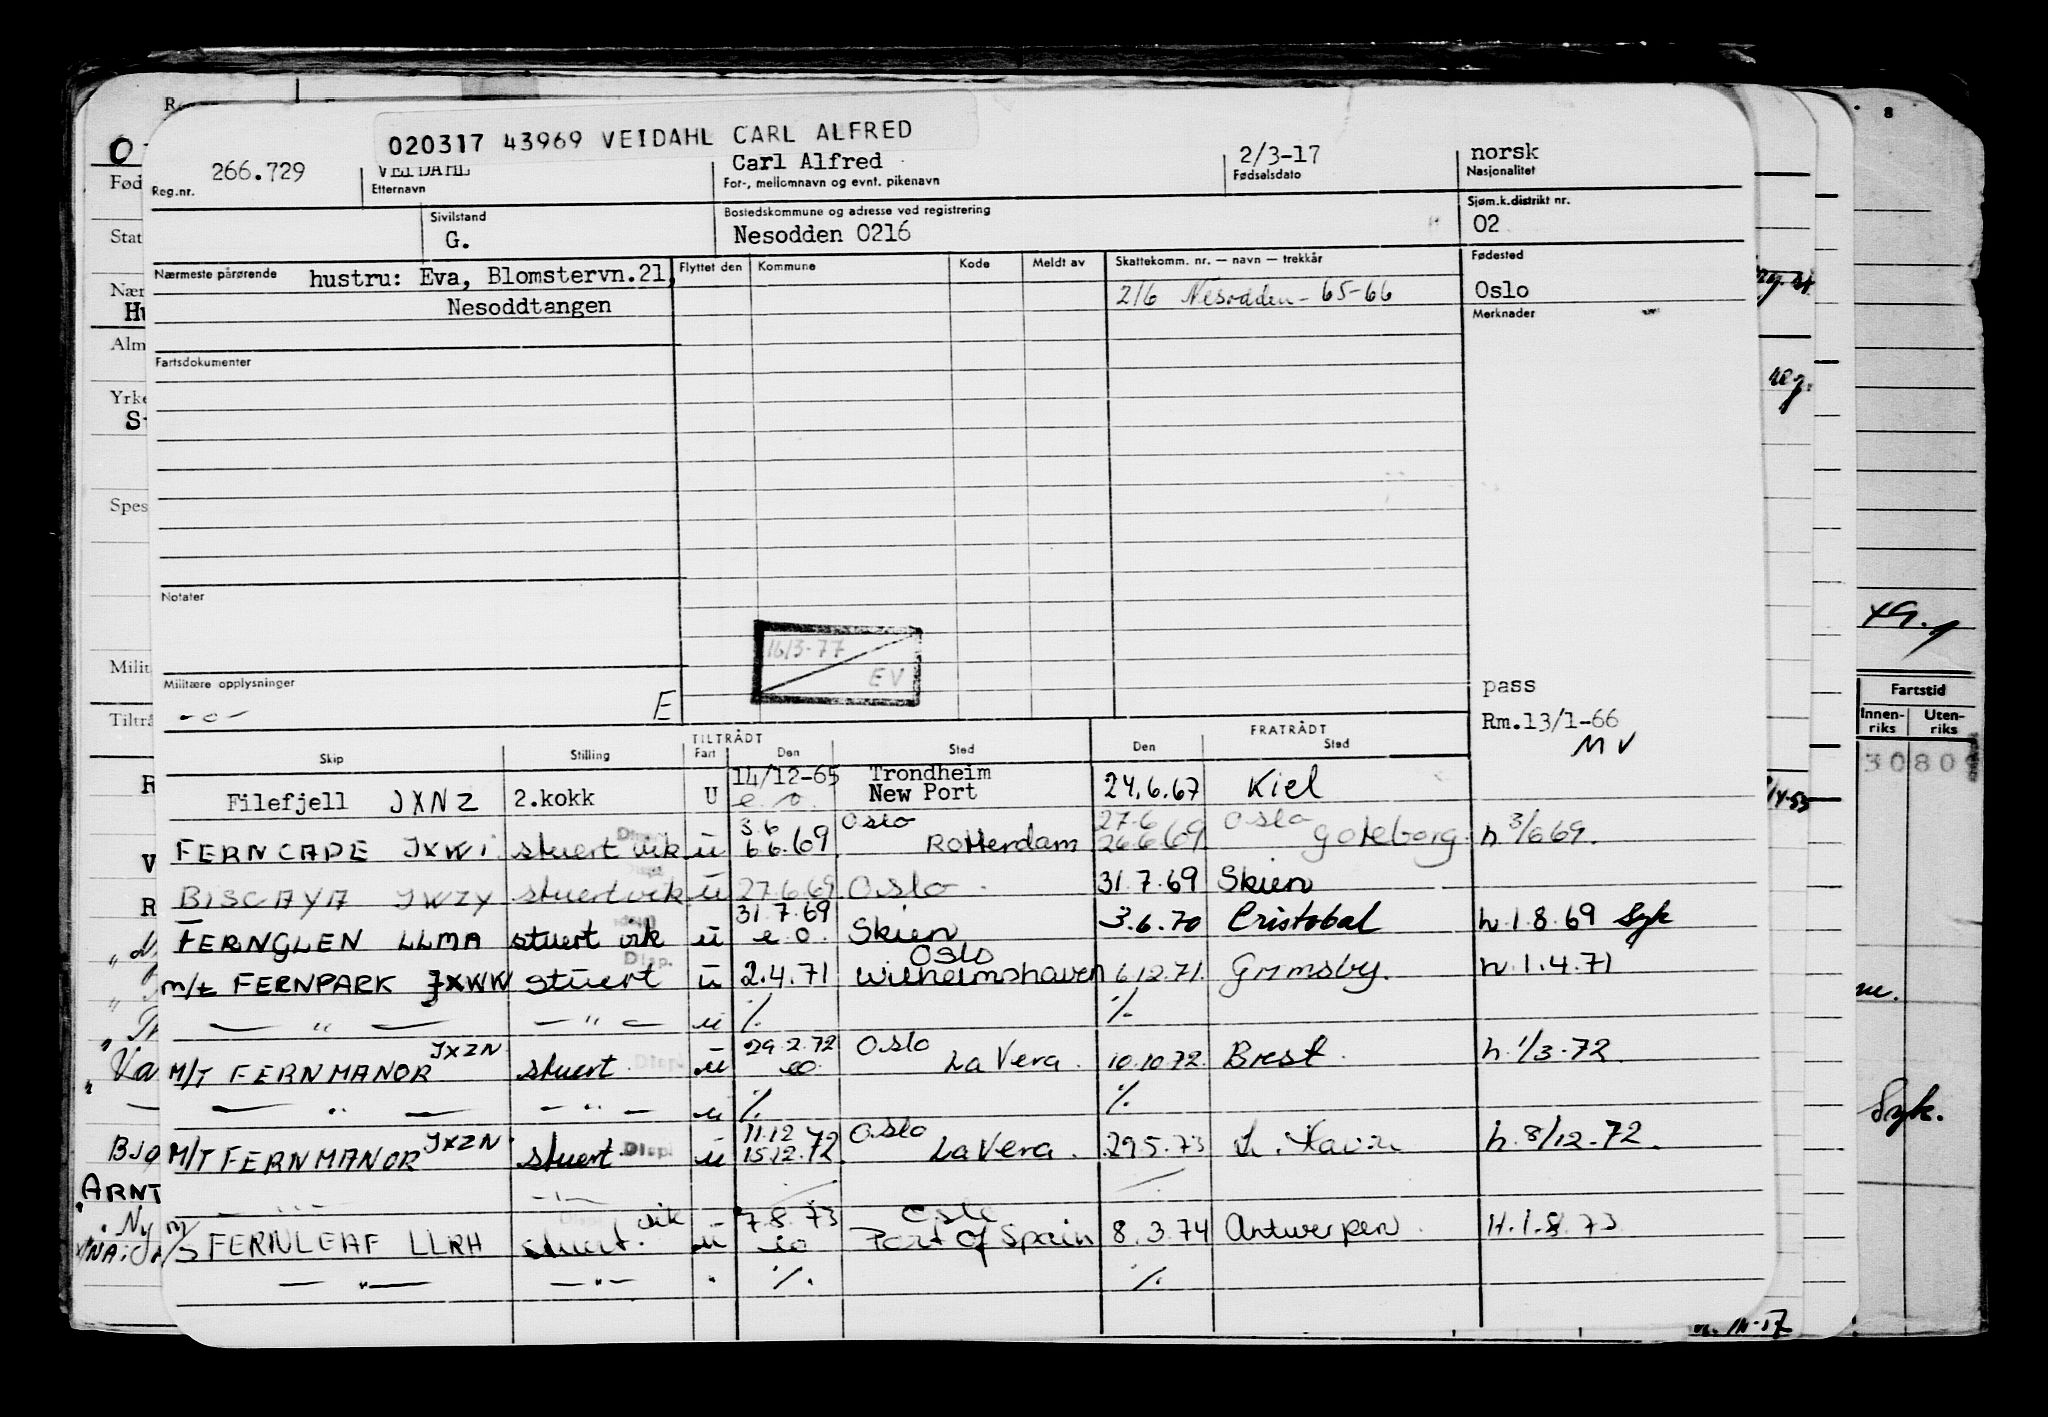 020317 43969 VEIDAHL CARL ALFRED
266.729 VEIDAHL Carl Alfred 2/3-17 norsk
Reg.nr. Etternavn For-, mellomnavn og evnt. pikenavn Fødselsdato Nasjonalitet
Sivilstand Bostedskommune og adresse ved registrering Sjøm.k.distrikt nr.
G. Nesodden 0216 02
Nærmeste pårørende hustru: Eva, Blomstervn.21, Flyttet den Kommune Kode Meldt av Skattekomm. nr. — navn — trekkår Fødested
Nesoddtangen 216 Nesodden - 65-66 Oslo
Merknader
Fartsdokumenter
Notater
16/3-77
EV
Militære opplysninger
- o - E
pass
Rm.13/1-66
MV
TILTRÅDT FRATRÅDT
Skip Stilling Fart Den Sted Den Sted
14/12-65 Trondheim
Filefjell JXNZ 2.kokk U e.o. New Port 24.6.67 Kiel
3.6 Oslo 27.6 Oslo
FERNCADE JXWI stuert vik u 6.6.69 Rotterdam 26.6.69 Goteborg. h. 3/6 69.
BISCAYA JWZY stuert vik u 27.6.69 Oslo 31.7.69 Skien
31.7.69
FERNGLEN LLMA stuert vik u e.o. Skien 3.6.70 Cristobal h.1.8.69 Syk
Displ. Oslo
m/t FERNPARK JXWW stuert u 2.4.71 Wilhelmshaven 6.12.71 Grimsby. h.1.4.71
— " — — " — u %. %.
JXZN 29.2.72 Oslo
M/T FERNMANOR stuert. Displ u eo La Vera. 10.10.72. Brest. h. 1/3.72.
— " — — " — u %. %.
JXZN 11.12 Oslo
M/T FERNMANOR stuert. Displ u 15.12.72. La Vera. 29.5.73 h. 8/12-72.
vik 7.8.73 Oslo
m/s FERNLEAF LLRH stuert. u eo Port of Spain 8.3.74 Antwerpen. H.1.8.73
— " — — " — %. %.
Fartstid
Innen-riks Uten-riks
3080
Syk.